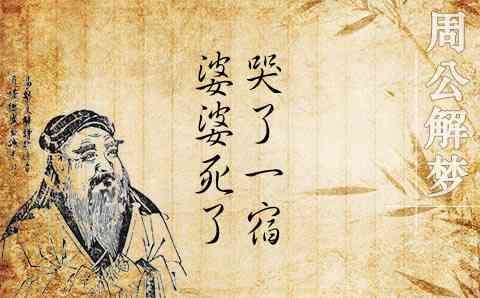 周公解梦
哭了一宿
婆婆死了